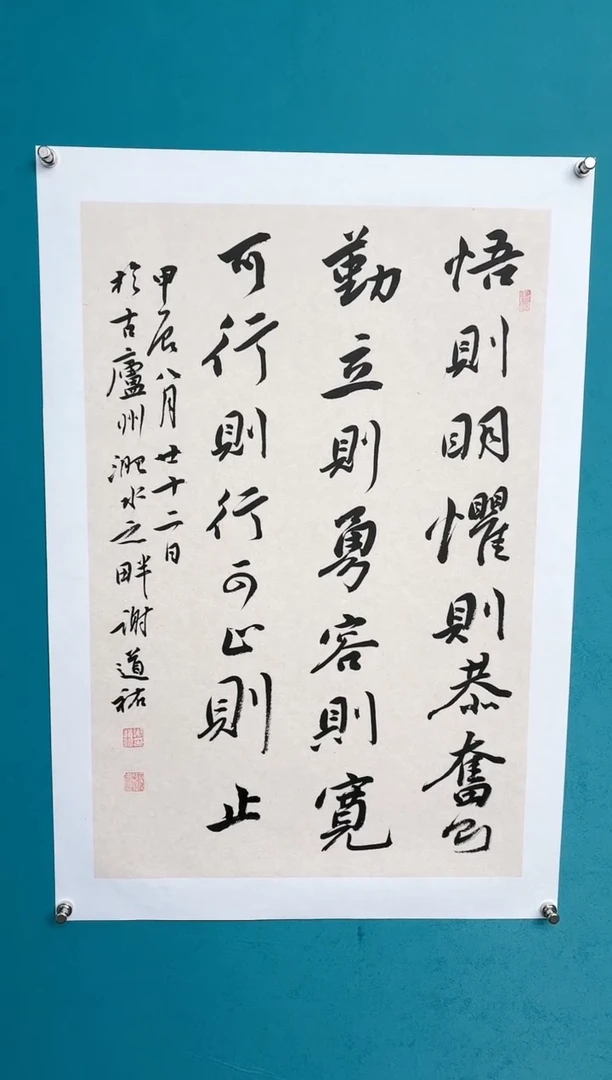 悟則明懼則恭奮則
勤立則勇容則寬
可行則行可止則止
甲辰八月廿十二日
於古廬州淝水之畔谢道祐